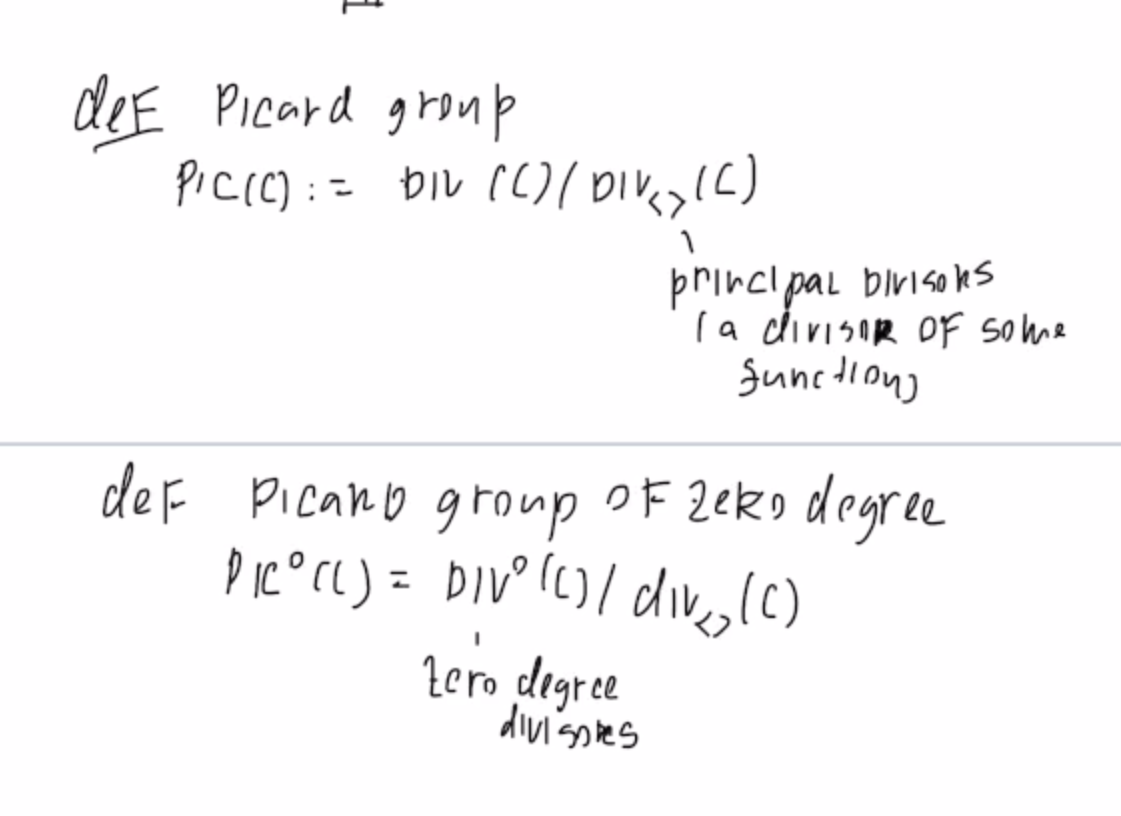 def Picard group
Pic(C) := Div (C) / Div<>(C)
principal divisors
(a divisor of some
function)
def Picard group of zero degree
Pic⁰(C) = Div⁰(C) / div<>(C)
zero degree
divisors